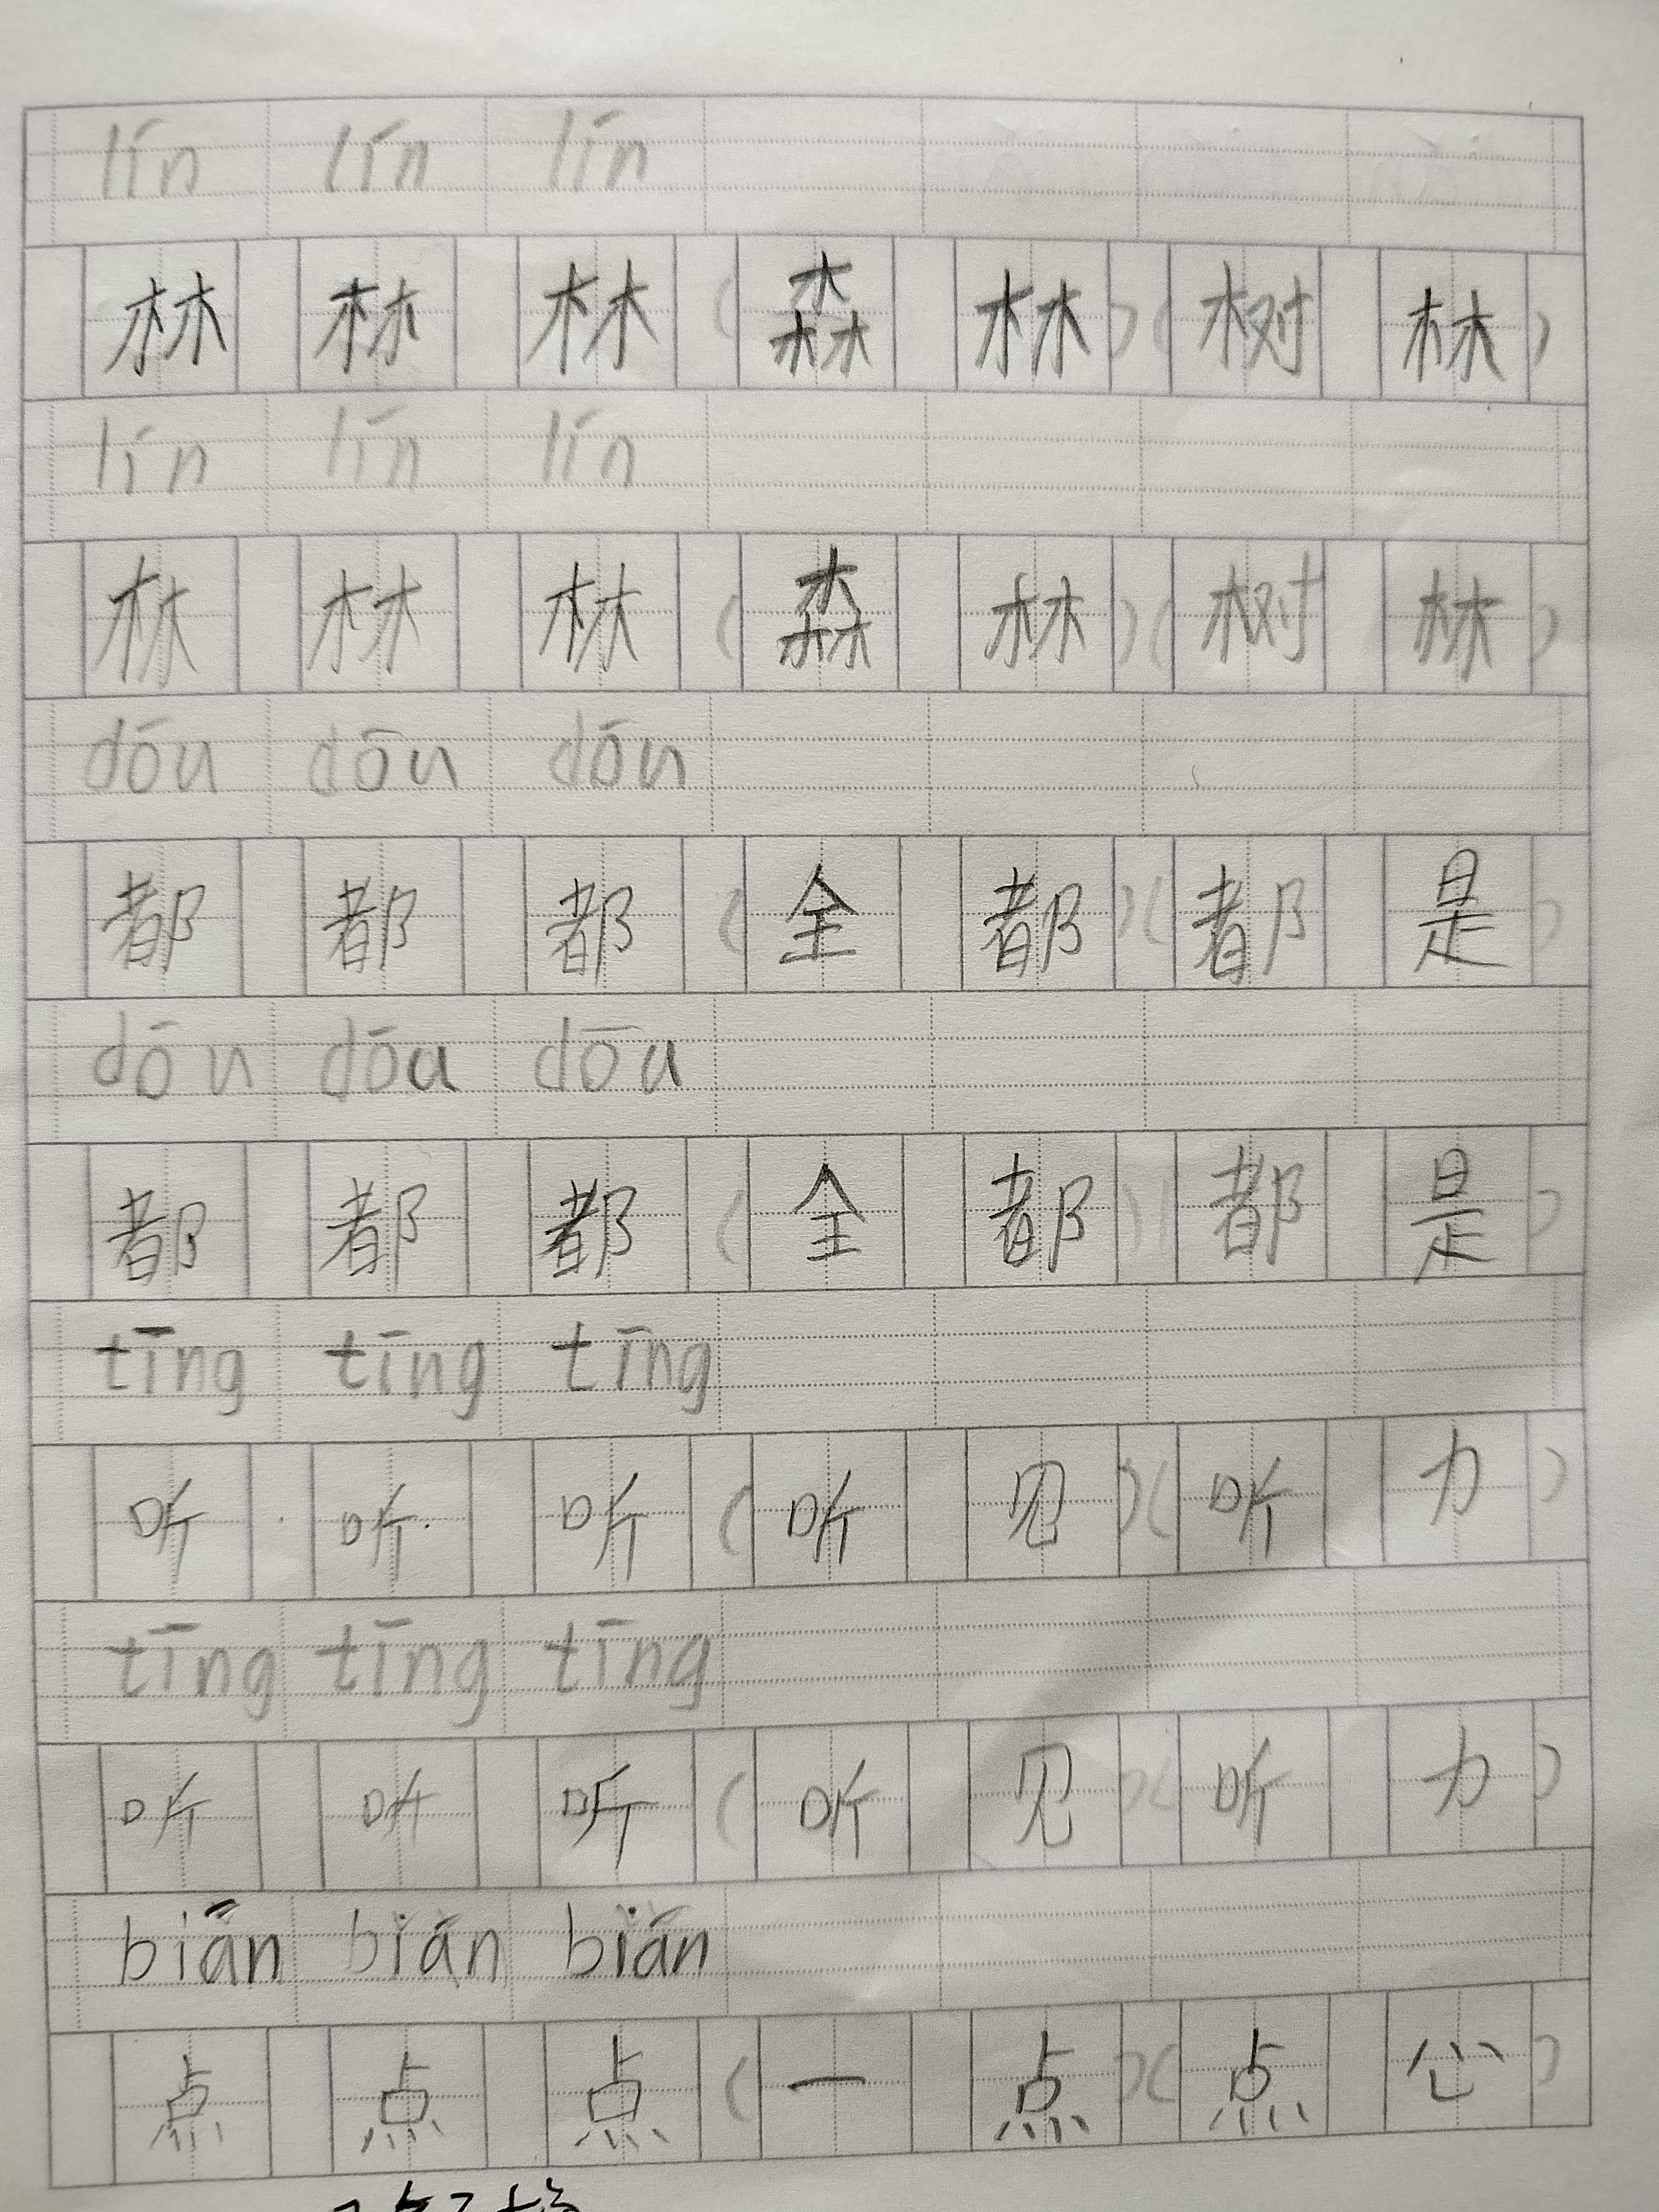 lín lín lín
林 林 林 (森 林)(树 林)
lín lín lín
林 林 林 (森 林)(树 林)
dōu dōu dōu
都 都 都 (全 都)(都 是)
dōu dōu dōu
都 都 都 (全 都)(都 是)
tīng tīng tīng
听 听 听 (听 见)(听 力)
tīng tīng tīng
听 听 听 (听 见)(听 力)
biān bián bián
点 点 点 (一 点)(点 心)